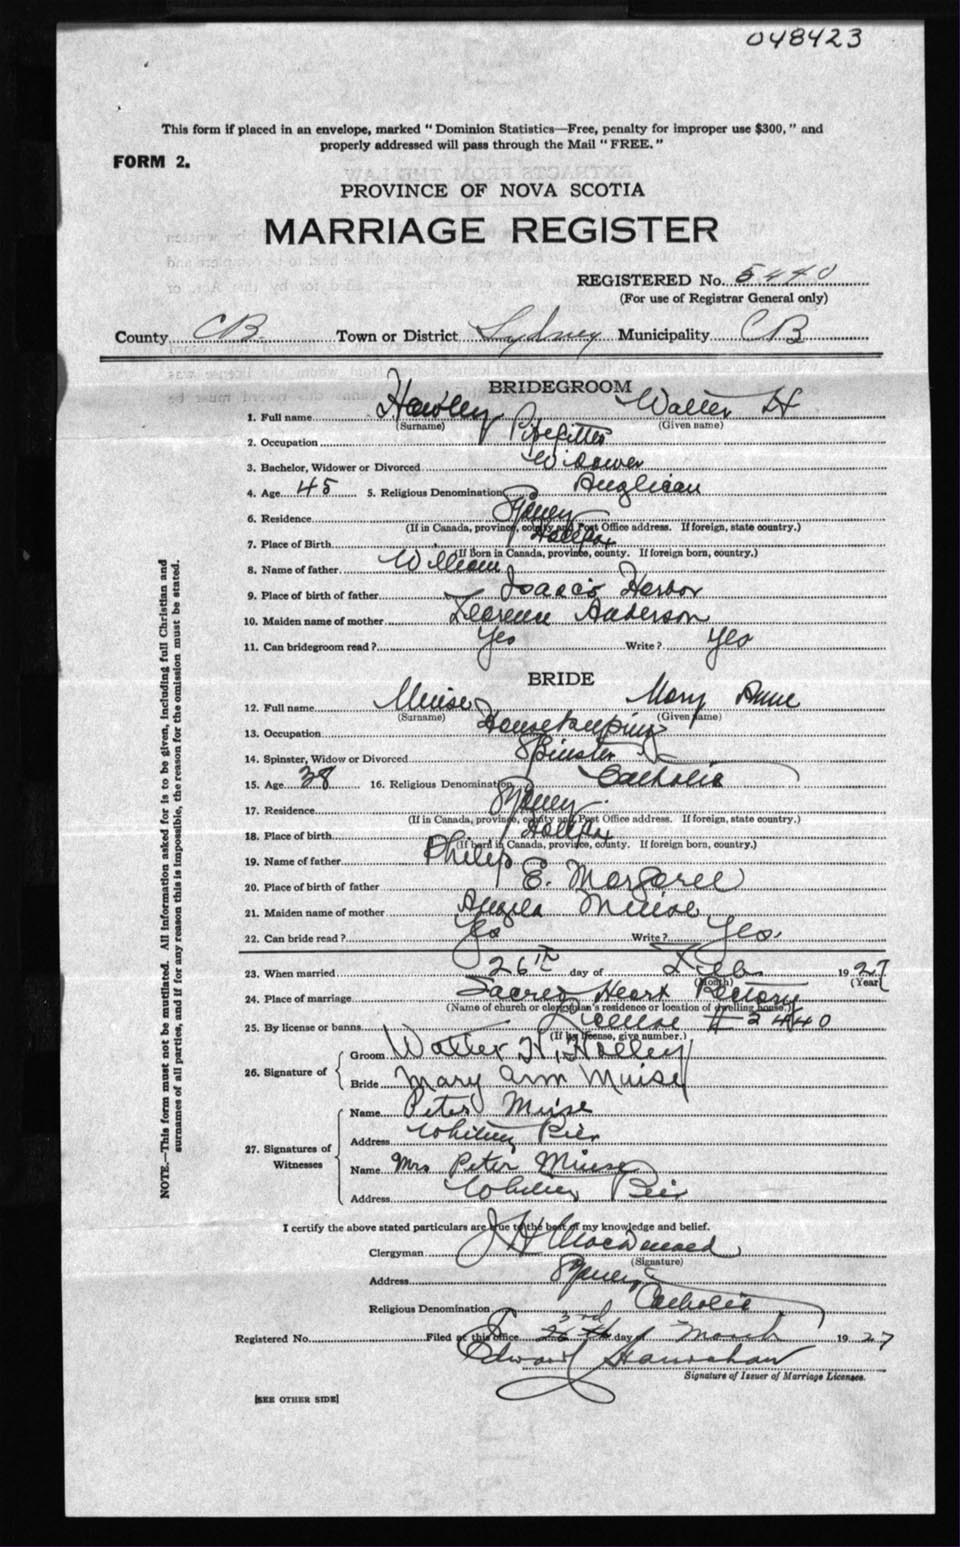 048423
This form if placed in an envelope, marked "Dominion Statistics—Free, penalty for improper use $300," and
properly addressed will pass through the Mail "FREE."
FORM 2.
PROVINCE OF NOVA SCOTIA
MARRIAGE REGISTER
REGISTERED No. 5440
(For use of Registrar General only)
County CB. Town or District Sydney Municipality CB
BRIDEGROOM
1. Full name Hawley Walter H
(Surname) (Given name)
2. Occupation Pipefitter
3. Bachelor, Widower or Divorced Widower
4. Age 45 5. Religious Denomination Anglican
6. Residence Sydney
(If in Canada, province, county and Post Office address. If foreign, state country.)
7. Place of Birth Halifax
(If Born in Canada, province, county. If foreign born, country.)
8. Name of father William
9. Place of birth of father Isaac's Harbor
10. Maiden name of mother Florence Anderson
11. Can bridegroom read? Yes Write? Yes
BRIDE
12. Full name Muise Mary Anne
(Surname) (Given name)
13. Occupation Housekeeping
14. Spinster, Widow or Divorced Spinster
15. Age 38 16. Religious Denomination Catholic
17. Residence Sydney
(If in Canada, province, county and Post Office address. If foreign, state country.)
18. Place of birth Halifax
(If born in Canada, province, county. If foreign born, country.)
19. Name of father Philip
20. Place of birth of father E. Margaree
21. Maiden name of mother Angela Muise
22. Can bride read? Yes Write? Yes.
23. When married 26th day of Feb 1927
(Month) (Year)
24. Place of marriage Sacred Heart Rectory
(Name of church or clergyman's residence or location of dwelling house.)
25. By license or banns License # 2440
(If by license, give number.)
26. Signature of Groom Walter H. Holley
Bride Mary Ann Muise
27. Signatures of Witnesses Name Peter Muise
Address Whitney Pier
Name Mrs Peter Muise
Address Whitney Pier
I certify the above stated particulars are true to the best of my knowledge and belief.
Clergyman J H MacDonald
(Signature)
Address Sydney
Religious Denomination Catholic
3rd
Registered No. Filed at this office 26th day of March 1927
Edward Hanrahan
Signature of Issuer of Marriage Licenses.
[SEE OTHER SIDE]
NOTE.—This form must not be mutilated. All information asked for is to be given, including full Christian and
surnames of all parties, and if for any reason this is impossible, the reason for the omission must be stated.